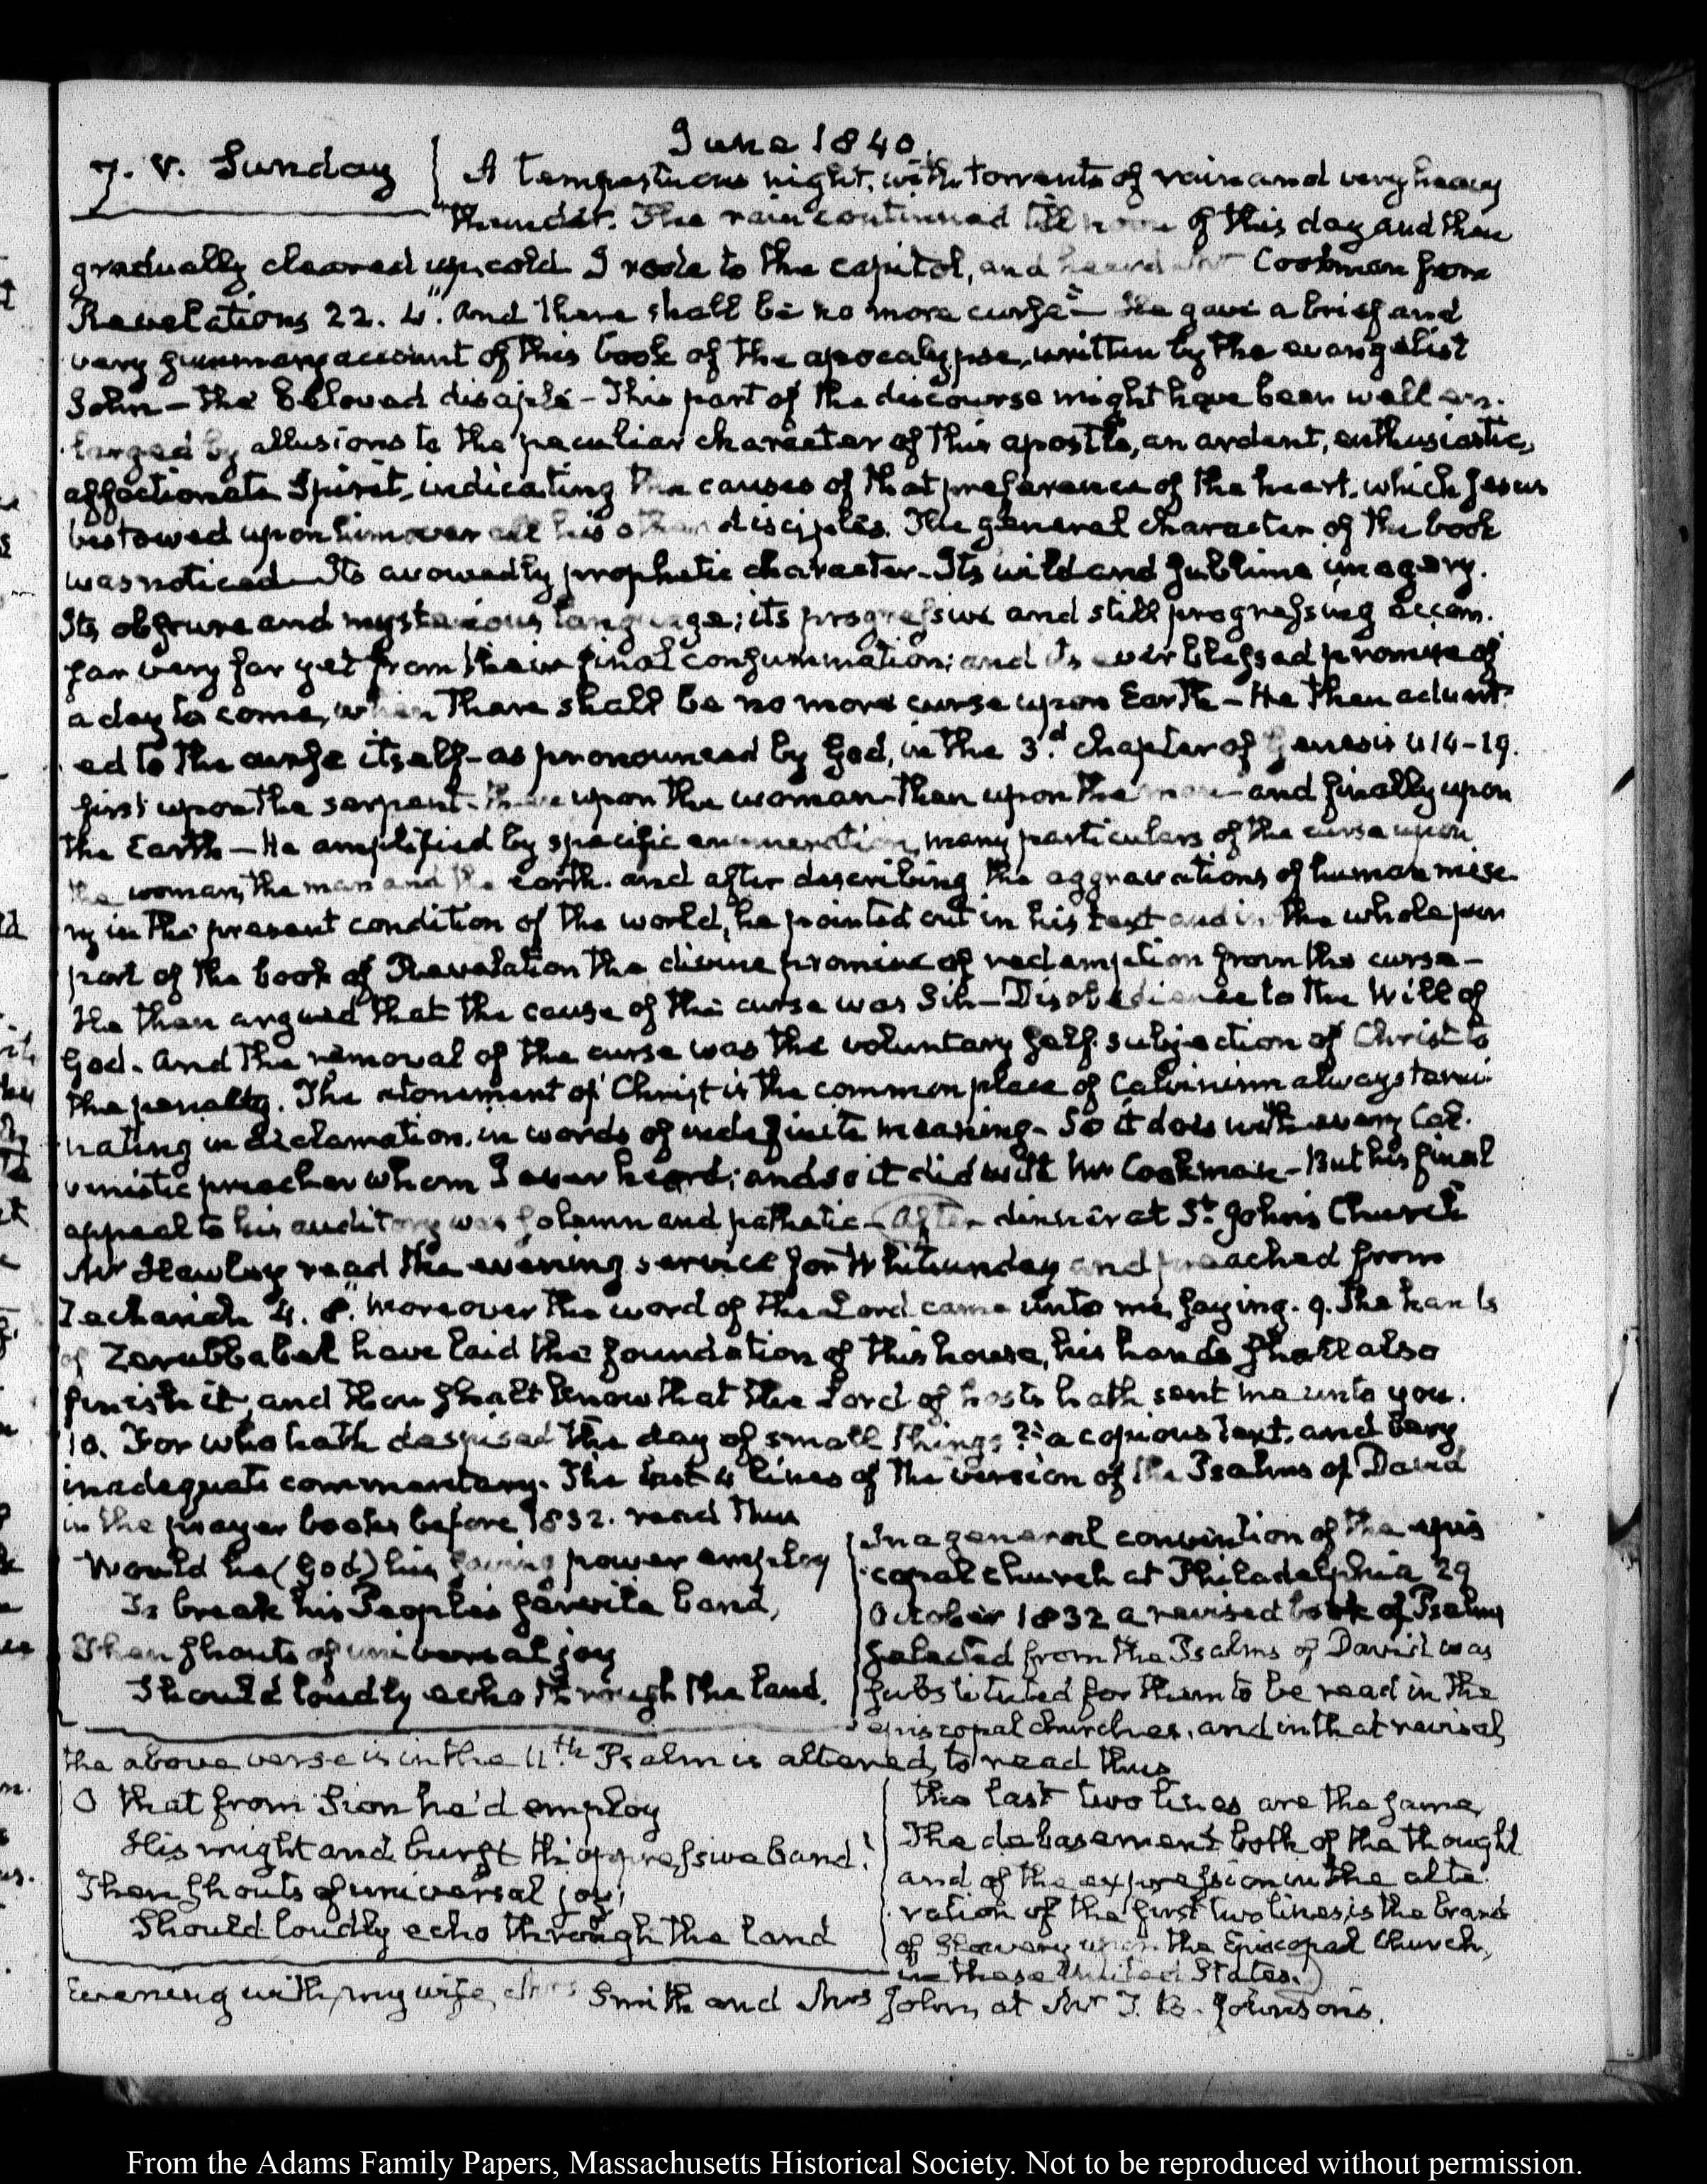 June 1840.
7. V. Sunday
A tempestuous night, with torrents of rain and very heavy
thunder. The rain continued till noon of this day and then
gradually cleared up, cold. I rode to the capitol, and heard Mr Cookman from
Revelations 22. 4. "And there shall be no more curse" – He gave a brief and
very summary account of this book of the apocalypse, written by the evangelist
John – the beloved disciple – This part of the discourse might have been well en-
larged by allusions to the peculiar character of this apostle, an ardent, enthusiastic,
affectionate Spirit, indicating the causes of that preference of the heart, which Jesus
bestowed upon him over all his other disciples. The general character of the book
was noticed – Its avowedly prophetic character – Its wild and sublime imagery.
Its obscure and mysterious language; its progressive and still progressing
far very far yet from their final consummation; and its ever blessed promise of
a day to come, when there shall be no more curse upon Earth – He then advert-
ed to the curse itself – as pronounced by God, in the 3d. chapter of Genesis v 14–19.
first upon the serpent – then upon the woman – then upon the man – and finally upon
the Earth – He amplified by specific enumeration, many particulars of the curse upon
the woman, the man and the earth. and after describing the aggravations of human mise-
ry in the present condition of the world, he pointed out in his text and in the whole
part of the book of Revelation the divine promise of redemption from the curse –
He then argued that the cause of the curse was Sin – Disobedience to the Will of
God. And the removal of the curse was the voluntary self subjection of Christ to
the penalty. The atonement of Christ is the common place of Calvinism always termi-
nating in declamation, in words of indefinite meaning – So it does with every Cal-
vinistic preacher whom I ever heard; and so it did with Mr Cookman – But his final
appeal to his auditory was solemn and pathetic – After dinner at St. John's Church
Mr Hawley read the evening service for Whitsunday and preached from
Zechariah 4. 8. "Moreover the word of the Lord came unto me, saying. 9. The hands
of Zerubbabel have laid the foundation of this house, his hands shall also
finish it, and thou shalt know that the Lord of hosts hath sent me unto you.
10. For who hath despised the day of small things?" a copious text, and very
inadequate commentary. The last 4 lines of the version of the Psalms of David
in the prayer books before 1832. read thus
Would he (God) his saving power employ
To break his People's servile band,
Then shouts of universal joy
Should loudly echo through the land.
In a general convention of the epis
copal church at Philadelphia 29
October 1832 a revised book of Psalms
selected from the Psalms of David was
substituted for them to be read in the
episcopal churches, and in that revisal
the above verse is in the 11.th Psalm is altered, to read thus
O that from Sion he'd employ
His might and burst th'oppressive band!
Then shouts of universal joy,
Should loudly echo through the land
the last two lines are the same,
The debasement both of the thought
and of the expression in the alte-
ration of the first two lines is the brand
of Slavery upon the Episcopal Church,
in these United States.)
Evening with, my wife, Mrs Smith and Mrs John, at Mr T. B. Johnson's.
From the Adams Family Papers, Massachusetts Historical Society. Not to be reproduced without permission.